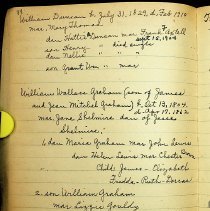 William Duncan b. July 31, 1829, d. Feb 1910
mar. Mary Thomas
dau Hattie Duncan mar Frank
Sept 15, 1904
son Henry died single
dau Nellie " "
son Grant mar
William Wallace Graham (son of James
and Jean Mitchel Graham) b. Oct 13, 1804.
d. Apr 19, 1862
mar. Jane Shelmire dau of Jesse
Shelmire,
1. dau Maria Graham mar John Lewis
dau Helen Lewis mar Chester
Child: James - Elizabeth
Freda - Ruth - Dorcas
2. son William Graham
mar Lizzie Gouldy